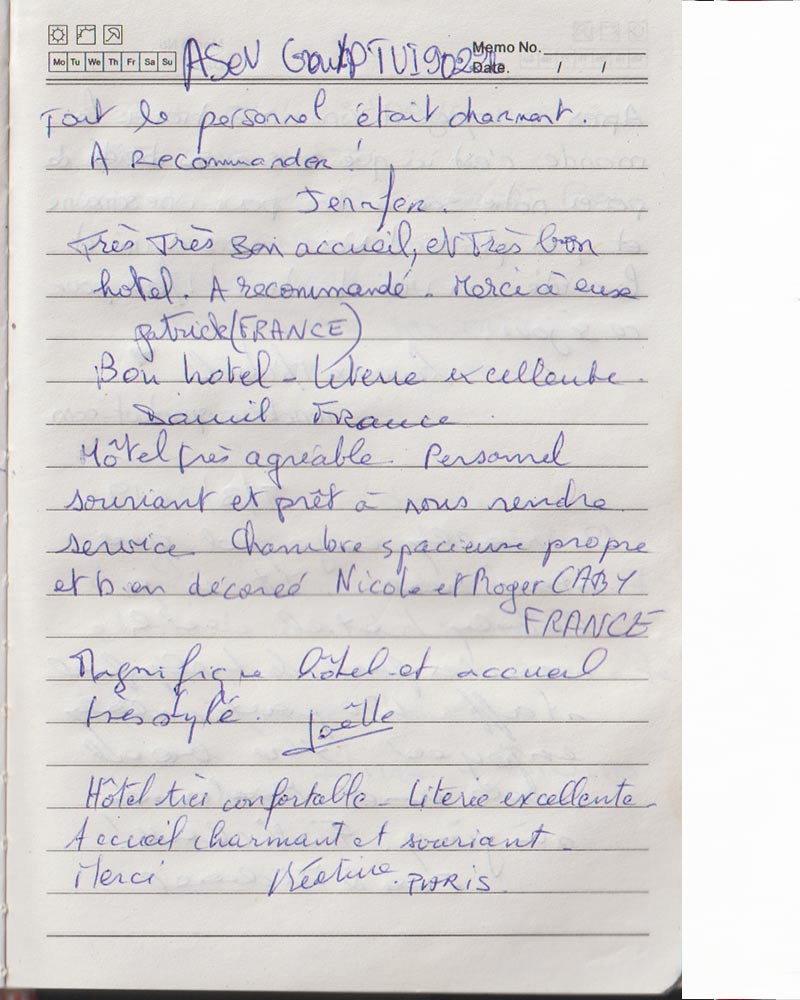 Mo Tu We Th Fr Sa Su
Memo No.
Date. / /
ASEV
Tout le personnel était charmant.
A Recommander !
Jennifer.
Très Très Bon accueil, et Très bon
hotel. A recommandé. Merci à eux
patrick (FRANCE)
Bon hotel - literie excellente.
France.
Hôtel très agréable. Personnel
souriant et prêt à nous rendre
service. Chambre spacieuse propre
et bien décoreé Nicole et Roger CABY
FRANCE
Magnifique hôtel et accueil
très stylé. Joëlle
Hôtel très confortable - Literie excellente -
Accueil charmant et souriant -
Merci PARIS.